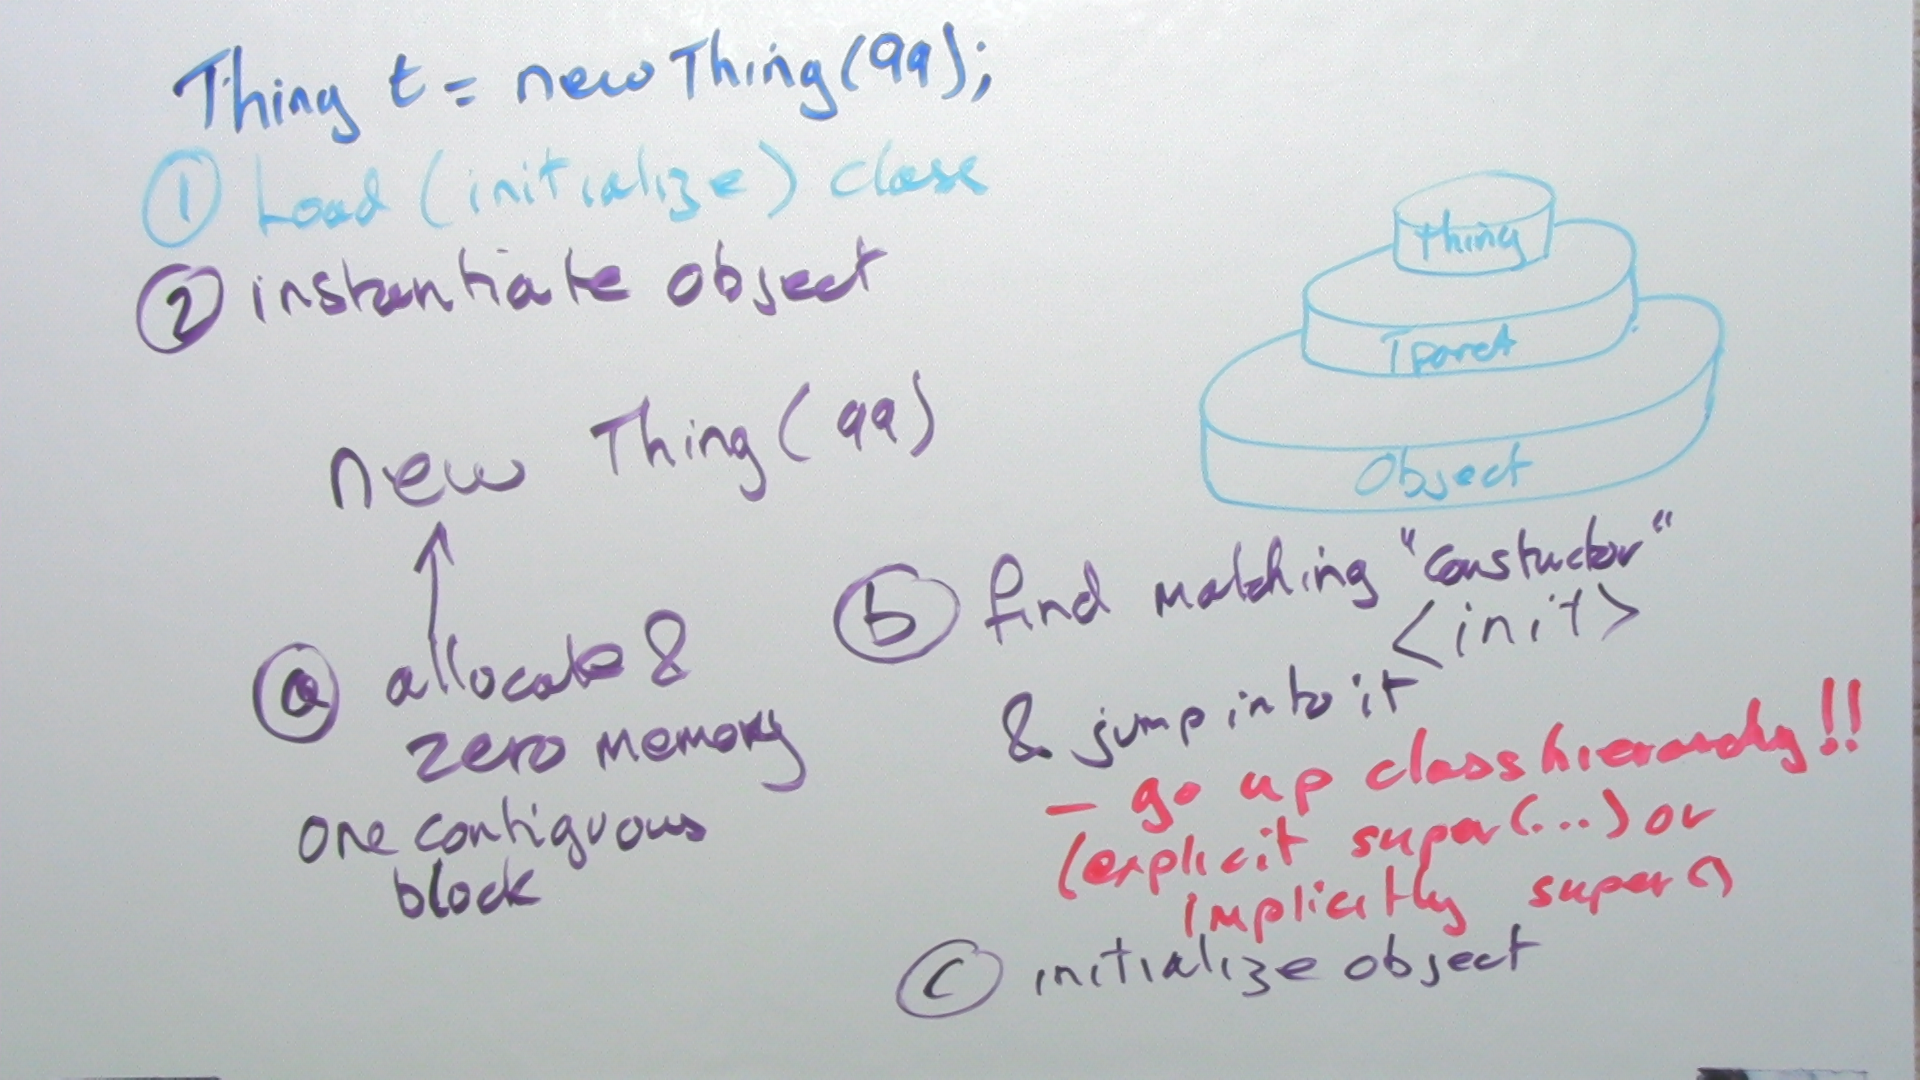 Thing t = new Thing(99);
① Load (initialize) class
② instantiate object
Thing
Tparent
Object
new Thing(99)
ⓐ allocate &
zero memory
one contiguous
block
ⓑ find matching "constuctor"
<init>
& jump into it
- go up class hierarchy!!
(explicit super(...) or
implicitly super()
ⓒ initialize object